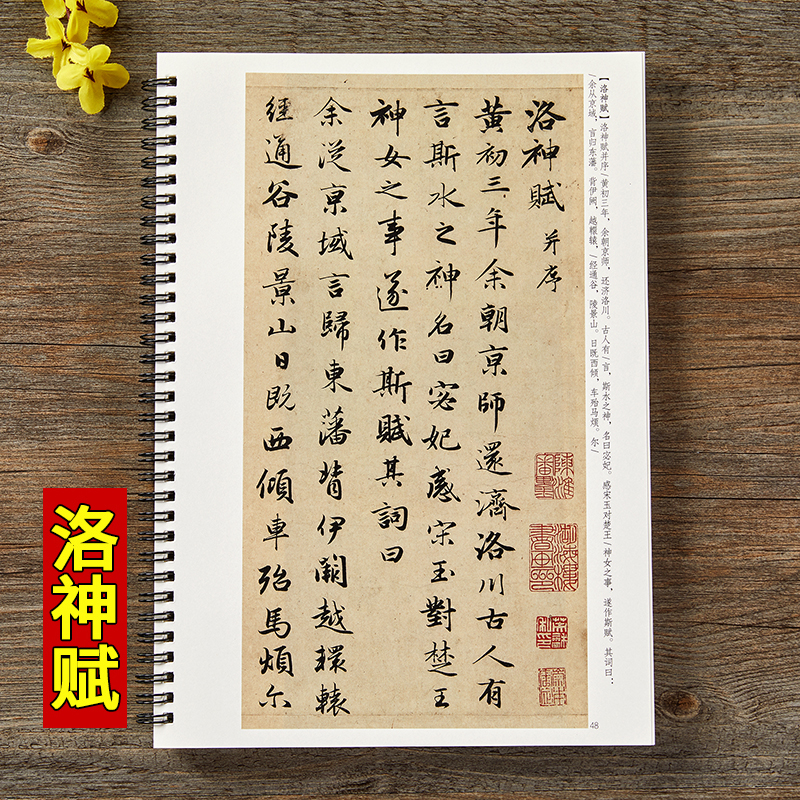 【洛神赋】洛神赋并序/黄初三年，余朝京师，还济洛川。古人有/言，斯水之神，名曰宓妃。感宋玉对楚王/神女之事，遂作斯赋。其词曰：
/余从京域，言归东藩。背伊阙，越轘辕，/经通谷，陵景山。日既西倾，车殆马烦。尔/
洛神賦 并序
黄初三年余朝京師還濟洛川古人有
言斯水之神名曰宓妃感宋玉對楚王
神女之事遂作斯賦其詞曰
余從京域言歸東藩背伊闕越轘轅
經通谷陵景山日既西傾車殆馬煩尔
48
洛神赋